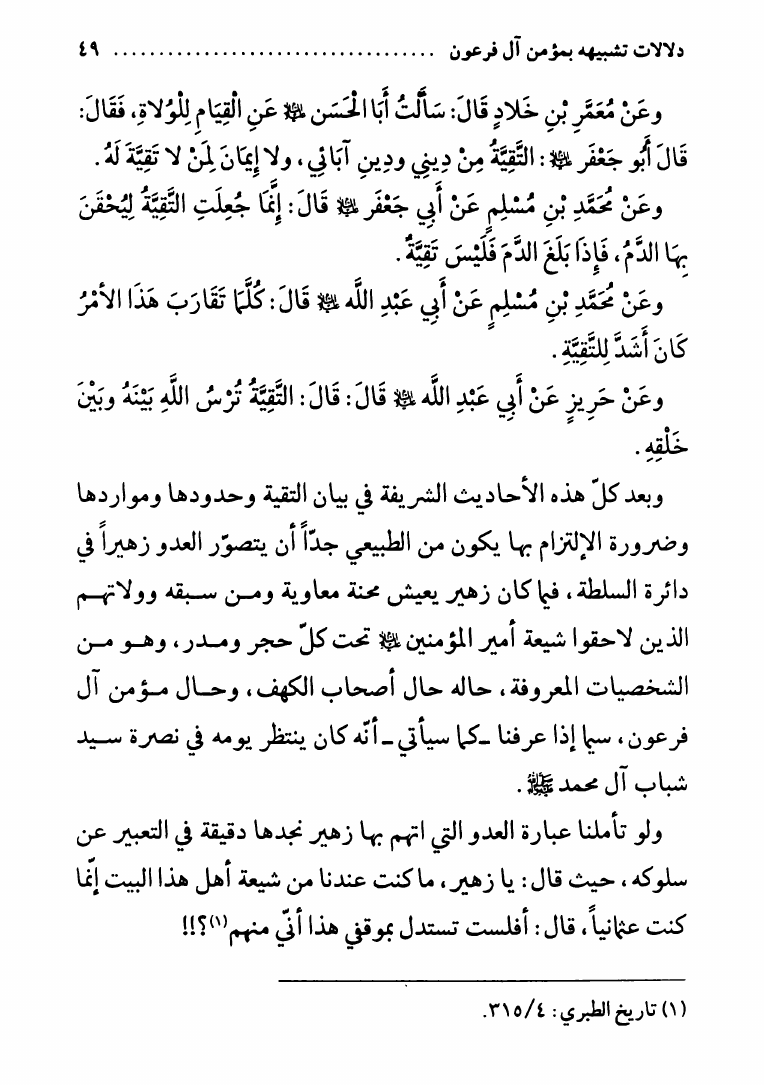 دلالات تشبيهه بمؤمن آل فرعون ................................... ٤٩
وعَنْ مُعَمَّرِ بْنِ خَلادٍ قَالَ: سَأَلْتُ أَبَا الْحَسَن عليه السلام عَنِ الْقِيَامِ لِلْوُلاةِ، فَقَالَ:
قَالَ أَبُو جَعْفَر عليه السلام: التَّقِيَّةُ مِنْ دِينِي ودِينِ آبَائِي، ولا إِيمَانَ لِمَنْ لا تَقِيَّةَ لَهُ.
وعَنْ مُحَمَّدِ بْنِ مُسْلِمٍ عَنْ أَبِي جَعْفَر عليه السلام قَالَ: إِنَّمَا جُعِلَتِ التَّقِيَّةُ لِيُحْقَنَ
بِهَا الدَّمُ، فَإِذَا بَلَغَ الدَّمَ فَلَيْسَ تَقِيَّةٌ.
وعَنْ مُحَمَّدِ بْنِ مُسْلِمٍ عَنْ أَبِي عَبْدِ اللَّه عليه السلام قَالَ: كُلَّمَا تَقَارَبَ هَذَا الأَمْرُ
كَانَ أَشَدَّ لِلتَّقِيَّةِ.
وعَنْ حَرِيزٍ عَنْ أَبِي عَبْدِ اللَّه عليه السلام قَالَ: قَالَ: التَّقِيَّةُ تُرْسُ اللَّهِ بَيْنَهُ وبَيْنَ
خَلْقِهِ.
وبعد كلّ هذه الأحاديث الشريفة في بيان التقية وحدودها ومواردها
وضرورة الإلتزام بها يكون من الطبيعي جدّاً أن يتصوّر العدو زهيراً في
دائرة السلطة، فيما كان زهير يعيش محنة معاوية ومن سبقه وولاتهم
الذين لاحقوا شيعة أمير المؤمنين عليه السلام تحت كلّ حجر ومدر، وهو من
الشخصيات المعروفة، حاله حال أصحاب الكهف، وحال مؤمن آل
فرعون، سيما إذا عرفنا ـ كما سيأتي ـ أنّه كان ينتظر يومه في نصرة سيد
شباب آل محمد ﷺ.
ولو تأملنا عبارة العدو التي اتهم بها زهير نجدها دقيقة في التعبير عن
سلوكه، حيث قال: يا زهير، ما كنت عندنا من شيعة أهل هذا البيت إنّما
كنت عثمانياً، قال: أفلست تستدل بموقفي هذا أنّي منهم(١)؟!!
(١) تاريخ الطبري: ٤/ ٣١٥.